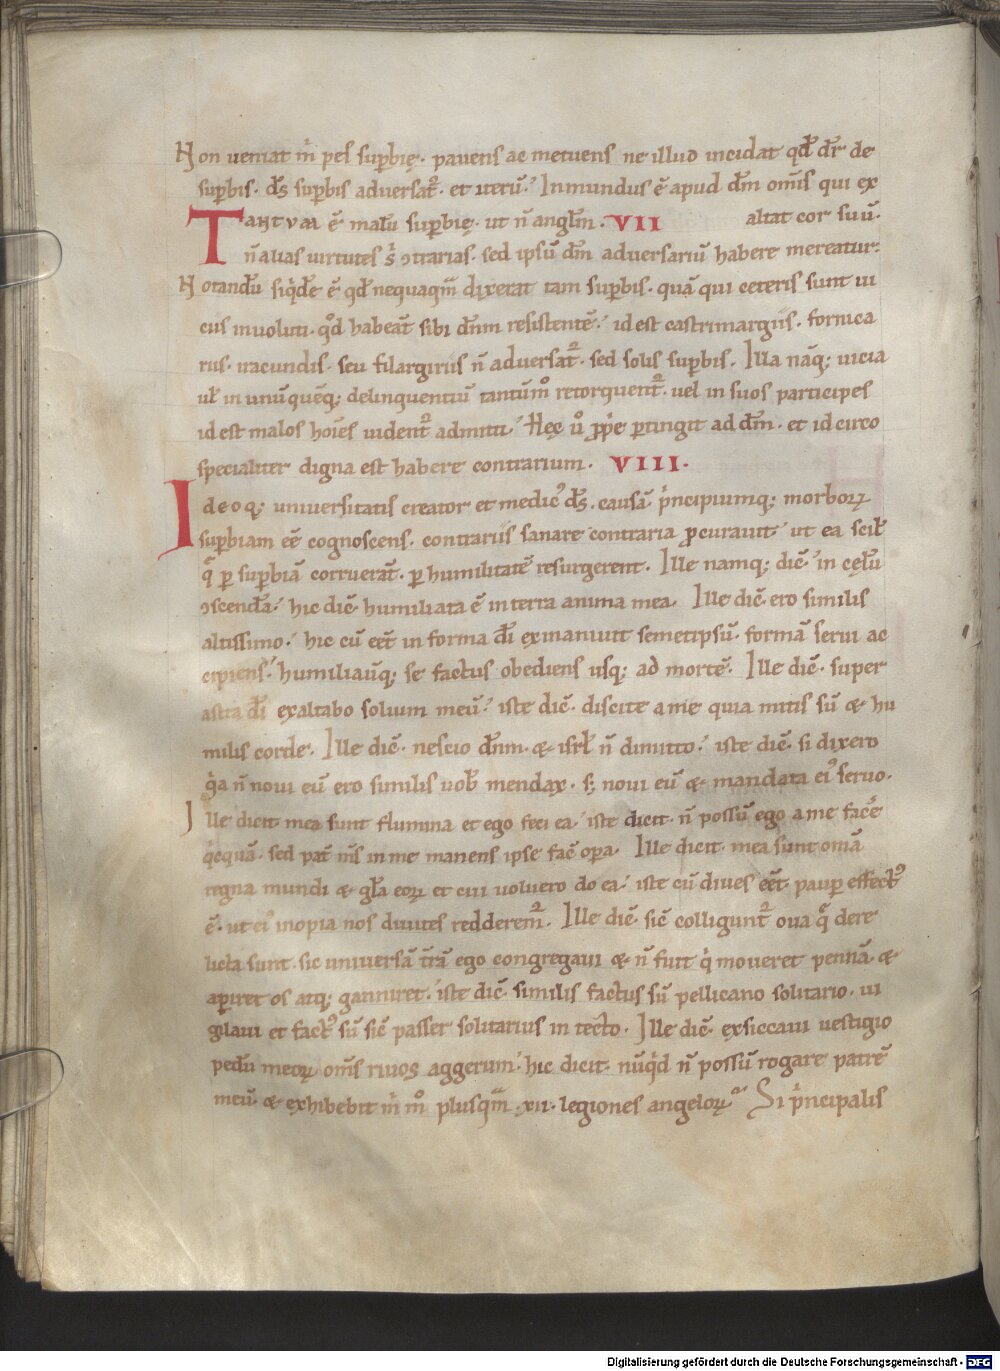 Non ueniat m̄ pes sup̄bię. pauens ac metuens ne illud incidat qd̄ dr̄ de
sup̄bis. d̄s sup̄bis aduersat᷑. et iterū. Inmundus ē apud dm̄ omīs qui ex
Tantum ē malū sup̄bię. ut ñ anglm̄. VII altat cor suū.
ñ alias uirtutes s; ↄtrarias. sed ipsū dm̄ aduersariū habere mereatur.
Notandū siq̇dē ē qd̄ nequaqm̄ dixerat tam sup̄bis. quā qui ceteris sunt ui
ciis inuoluti. qd̄ habeāt sibi dn̄m resistentē. id est castrimargiis. fornica
riis. iracundis. seu filargiriis ñ aduersat᷑. sed solis sup̄bis. Illa nāq; uicia
ul̄ in unūquēq; delinquentiū tantūmᵒ retorquent᷑. uel in suos participes
id est malos hoīes uident᷑ admitti. Hęc ůo ꝓp̄e ꝑtingit ad dm̄. et idcirco
specialiter digna est habere contrarium. VIII.
Ideoq; uniuersitatis creator et medic᷒ d̄s. causā p̄ncipiumq; morboꝝ
sup̄biam eē cognoscens. contrariis sanare contraria ꝓcurauit. ut ea scil̄
q̄ ꝑ sup̄biā corruerāt. ꝑ humilitatē resurgerent. Ille namq; dic̄. in cęlū
ↄscendā. hic dic̄. humiliata ē in terra anima mea. Ille dic̄. ero similis
altissimo. hic cū eēt in forma dī exinaniuit semetipsū. formā serui ac
cipiens. humiliauitq; se factus obediens usq; ad mortē. Ille dic̄. super
astra dī exaltabo solium meū. iste dic̄. discite a me quia mitis sū & hu
milis corde. Ille dic̄. nescio dn̄m. & isrl̄ ñ dimitto. iste dic̄. si dixero
q̇a ñ noui eū ero similis uob̄ mendax. s; noui eū & mandata ei᷒ seruo.
Ille dicit mea sunt flumina et ego feci ea. iste dicit. ñ possū ego a me facē
q̇cquā. sed pat̄ m̄s in me manens ipse fac̄ oꝑa. Ille dicit. mea sunt om̄a
regna mundi & gl̄a eoꝝ et cui uoluero do ea. iste cū diues eēt. pauꝑ effect᷒
ē. ut ei᷒ inopia nos diuites redderem᷑. Ille dic̄ sic̄ colligunt᷑ oua q̄ dere
licta sunt. sic uniuersā tr̄ā ego congregaui & ñ fuit q̇ moueret pennā &
aꝑiret os atq; ganniret. iste dic̄. similis factus sū pellicano solitario. ui
gilaui et fact᷒ sū sic̄ passer solitarius in tecto. Ille dic̄. exsiccaui uestigio
pedū meoꝝ omīs riuos aggerum. hic dicit. nūq̇d ñ possū rogare patrē
meū. & exhibebit m̄ mᵒ plusqm̄ .xii. legiones angeloꝝ. Si p̄ncipalis
Digitalisierung gefördert durch die Deutsche Forschungsgemeinschaft - DFG